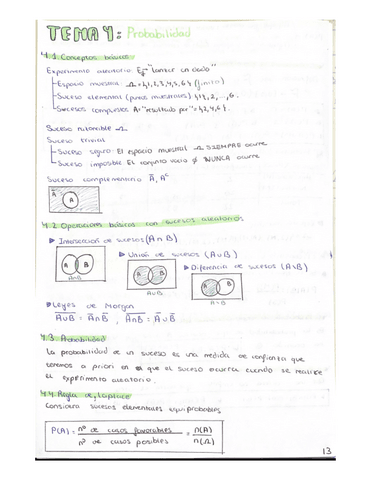 TEMA 4: Probabilidad
4.1. Conceptos básicos
Experimento aleatorio: Ej "lanzar un dado"
Espacio muestral: Ω = {1,2,3,4,5,6} (finito)
Suceso elemental (puntos muestrales) {1}, 2, ..., 6.
Sucesos compuestos A = "resultado par" = {2,4,6}.
Suceso
Suceso trivial
Suceso seguro: El espacio muestral Ω SIEMPRE ocurre
Suceso imposible El conjunto vacío ∅ NUNCA ocurre
Suceso complementario Ā, Aᶜ
Ā
A
4.2 Operaciones básicas con sucesos aleatorios
▶ Intersección de sucesos (A∩B)
▶ Unión de sucesos (A∪B)
▶ Diferencia de sucesos (A\B)
A B
A∩B
A B
A∪B
A B
A\B
▶ Leyes de Morgan
A̅∪̅B̅ = A̅∩B̅ , A̅∩̅B̅ = A̅∪B̅
4.3. Probabilidad
La probabilidad de un suceso es una medida de confianza que
tenemos a priori en que el suceso ocurra cuando se realice
el experimento aleatorio.
4.4. Regla de Laplace
Considera sucesos elementales equiprobables
P(A) = nº de casos favorables / nº de casos posibles = n(A) / n(Ω)
13